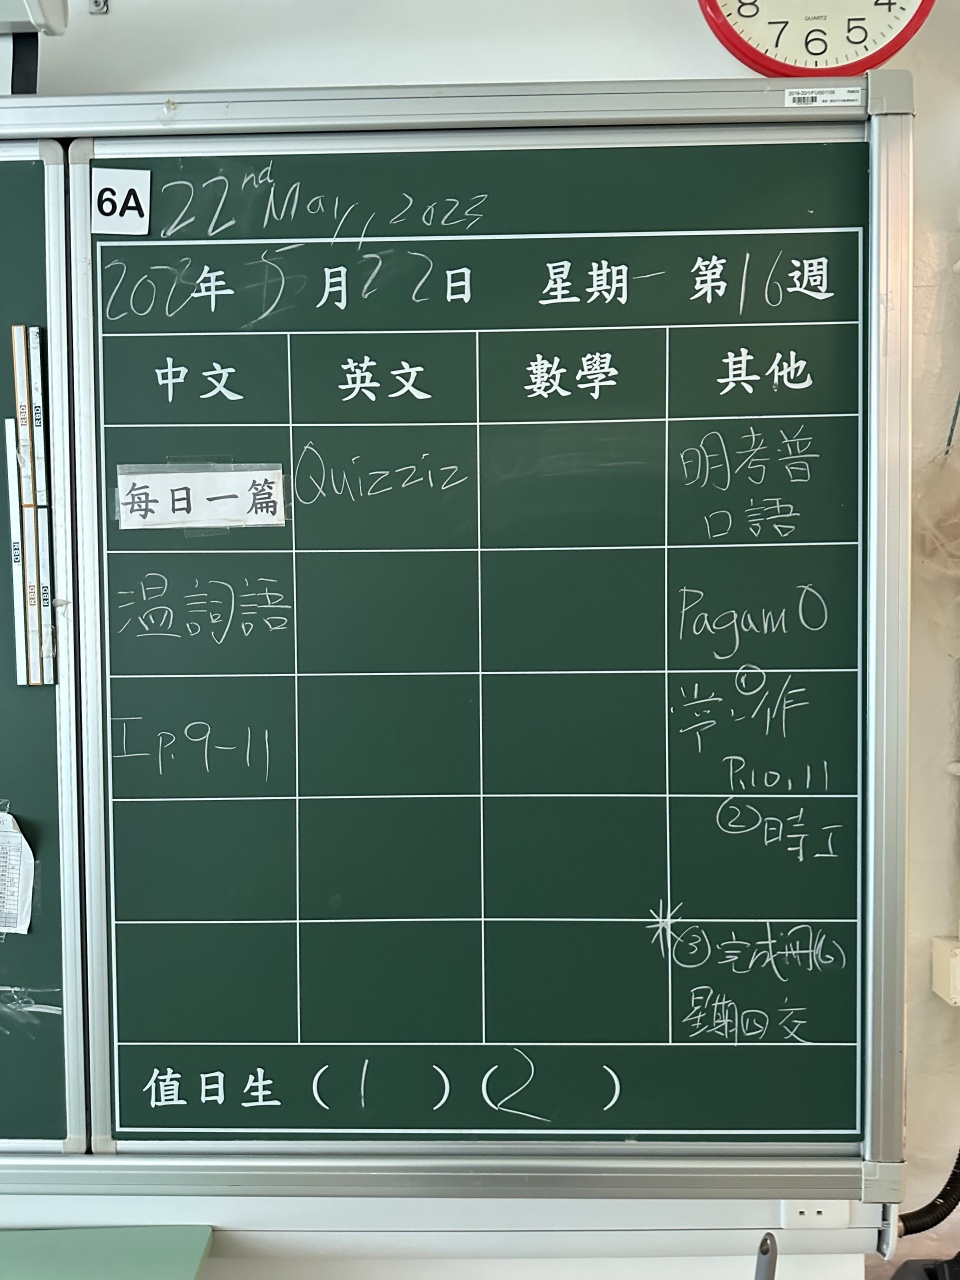 8 7 6 5 4
QUARTZ
6A
22nd May, 2023
2023年5月22日 星期一 第16週
中文 英文 數學 其他
每日一篇 Quizziz 明考普
口語
溫詞語 PagamO
工P.9-11 ①
常 作
P.10, 11
②時工
③完成冊(6)
星期四交
值日生 ( 1 ) ( 2 )
RBD
RBD
RBD
RBD
RBD